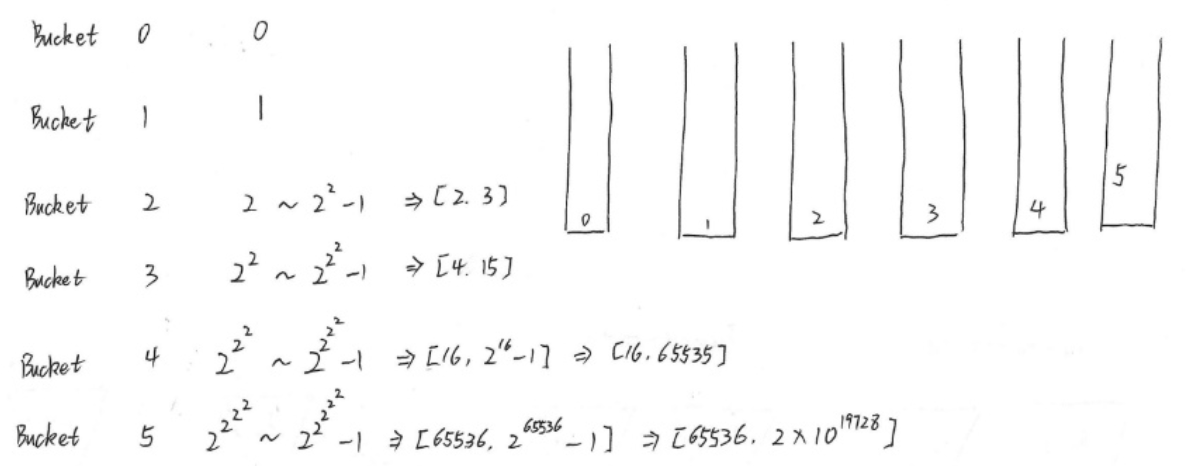 Bucket 0 0
Bucket 1 1
Bucket 2 2 ~ 2^2-1 ⇒ [2. 3]
Bucket 3 2^2 ~ 2^2^2-1 ⇒ [4. 15]
Bucket 4 2^2^2 ~ 2^2^2^2-1 ⇒ [16, 2^16-1] ⇒ [16. 65535]
Bucket 5 2^2^2^2 ~ 2^2^2^2^2-1 ⇒ [65536, 2^65536-1] ⇒ [65536. 2×10^19728]
0 1 2 3 4 5